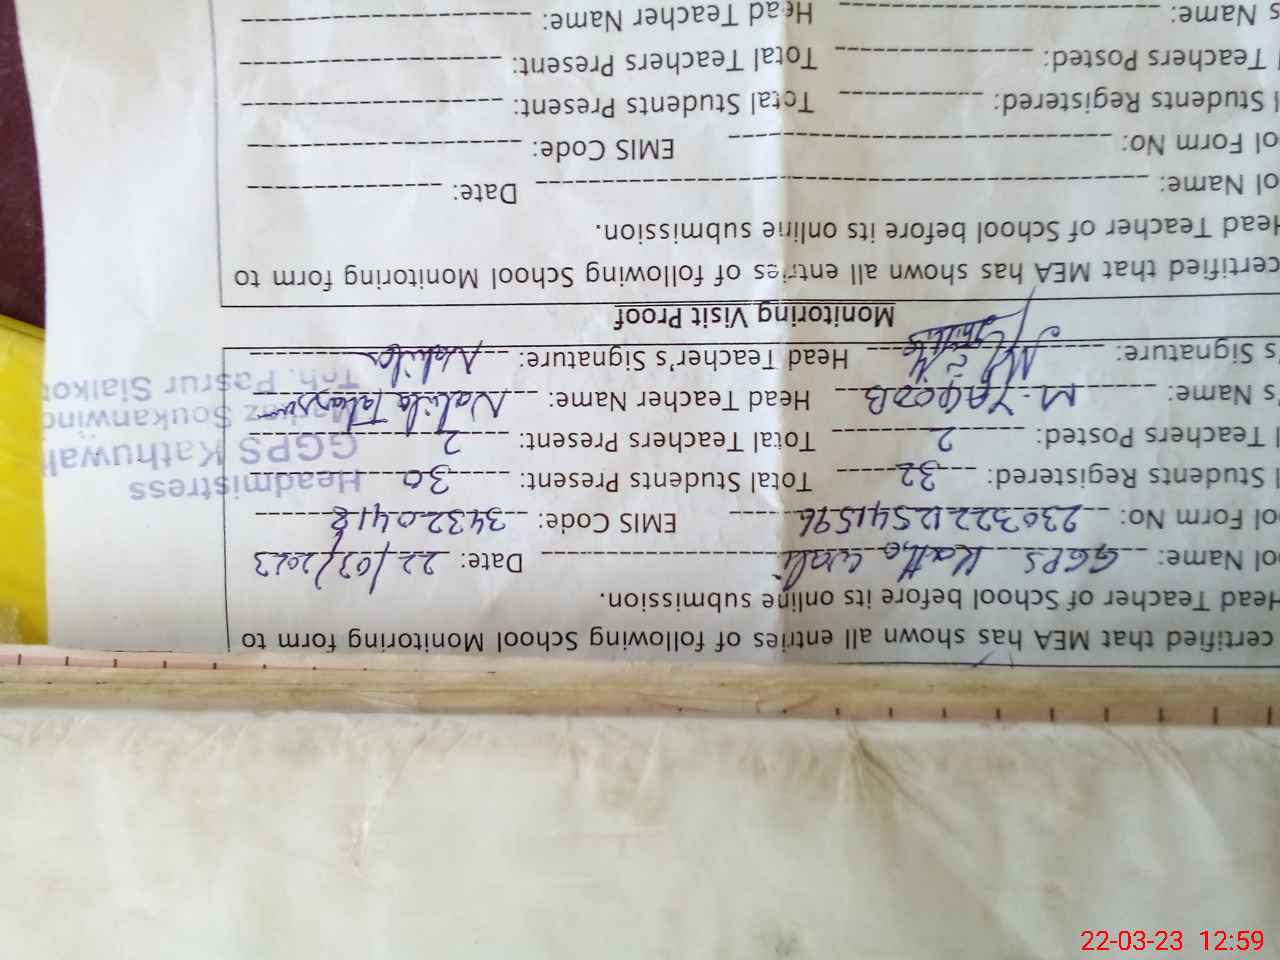 certified that MEA has shown all entries of following School Monitoring School Monitoring form to
Head Teacher of School before its online submission.
ool Name: GGPS Katho wali Date: 22/03/2023
ol Form No: EMIS Code: 34320418
l Students Registered: 32 Total Students Present: 30
l Teachers Posted: 2 Total Teachers Present: 2
's Name: M-YAQOOB Head Teacher Name: Nabila Tabassum
's Signature: Head Teacher's Signature: Nabila
Headmistress
GGPS Kathuwali
Markaz Soukanwind
Teh. Pasrur Sialkot
Monitoring Visit Proof
certified that MEA has shown all entries of following School Monitoring School Monitoring form to
Head Teacher of School before its online submission.
ol Name: Date:
ol Form No: EMIS Code:
l Students Registered: Total Students Present:
l Teachers Posted: Total Teachers Present:
s Name: Head Teacher Name:
22-03-23 12:59